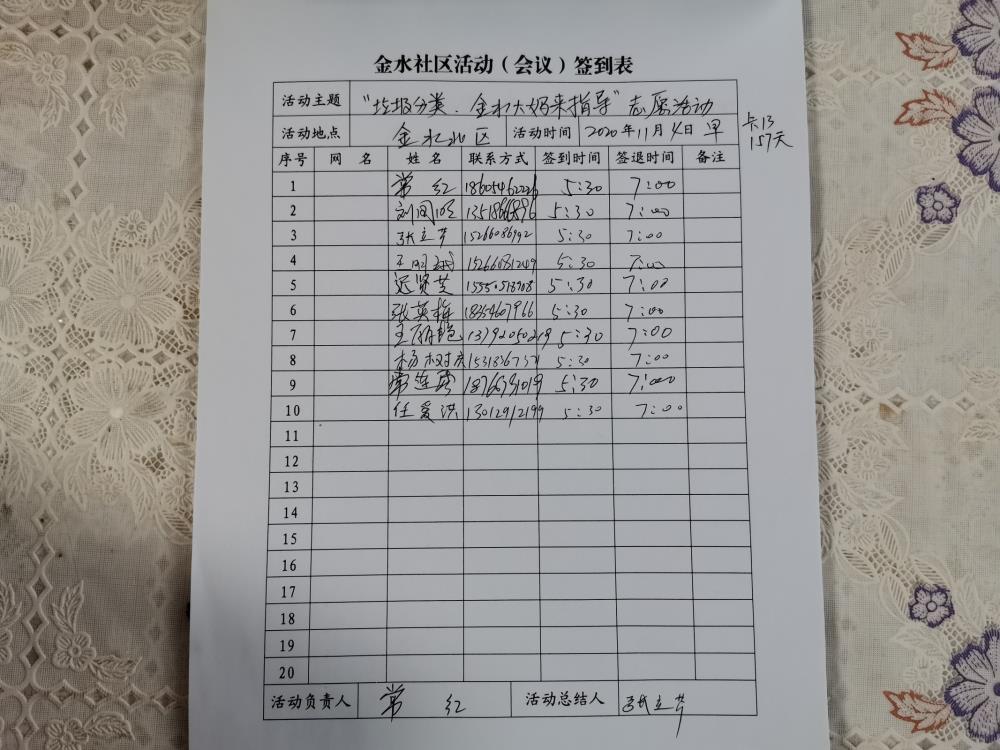 金水社区活动（会议）签到表
活动主题 “垃圾分类．金水大妈来指导”志愿活动
活动地点 金水北区 活动时间 2020年11月4日 早
卡13
157天
序号 网 名 姓 名 联系方式 签到时间 签退时间 备注
1 常 红 18605462226 5:30 7:00
2 5:30 7:00
3 张立芹 15266086992 5:30 7:00
4 15266081249 5:30 7:00
5 迟贤芝 15550513908 5:30 7:00
6 张英梅 18354607966 5:30 7:00
7 王丽艳 13792050219 5:30 7:00
8 杨树庆 5:30 7:00
9 常连荣 5:30 7:00
10 任爱洪 13012912199 5:30 7:00
11
12
13
14
15
16
17
18
19
20
活动负责人 常 红 活动总结人 张立芹